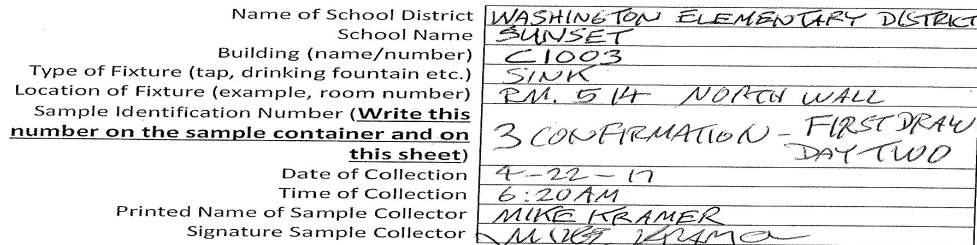 Name of School District WASHINGTON ELEMENTARY DISTRICT
School Name SUNSET
Building (name/number) C1003
Type of Fixture (tap, drinking fountain etc.) SINK
Location of Fixture (example, room number) RM. 514 NORTH WALL
Sample Identification Number (Write this
number on the sample container and on
this sheet) 3 CONFIRMATION - FIRST DRAW
DAY TWO
Date of Collection 4-22-17
Time of Collection 6:20AM
Printed Name of Sample Collector MIKE KRAMER
Signature Sample Collector